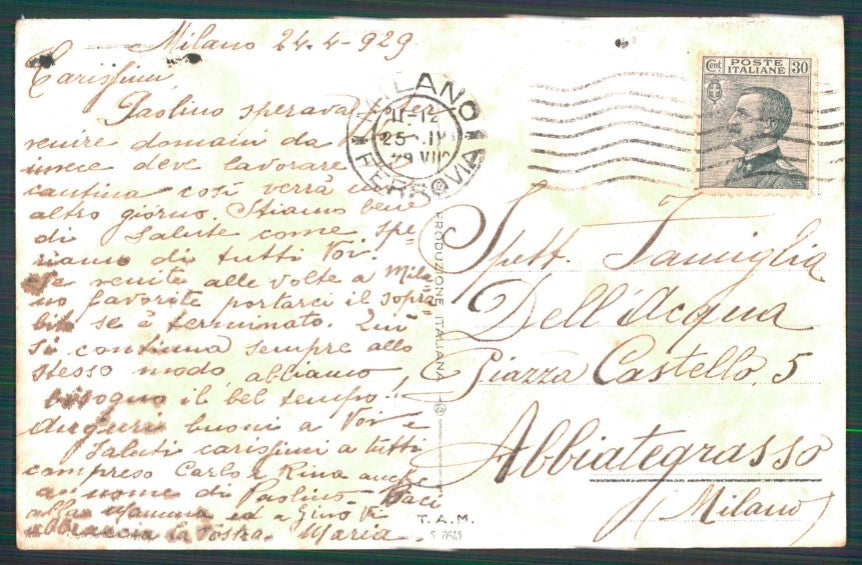 Milano 24.4-929
Carissimi,
Paolino sperava poter
venire domani da
invece deve lavorare
cantina così verrà un
altro giorno. Stiamo bene
di salute come spe=
riamo di tutti Voi.
Se venite alle volte a Mila=
no favorite portarci il sopra=
bito se è terminato. Qui
si continua sempre allo
stesso modo, abbiamo
bisogno il bel tempo!!
Auguri buoni a Voi e
saluti carissimi a tutti
compreso Carlo e Rina anche
a nome di Paolino - Baci
alla Mamma ed a Gino Vi
abbraccia la Vostra. Maria.
MILANO
11-12
25 IV
29 VII
FERROVIA
Cent POSTE ITALIANE 30
PRODUZIONE ITALIANA
Spett. Famiglia
Dell'Acqua
Piazza Castello, 5
Abbiategrasso
(Milano)
T.A.M.